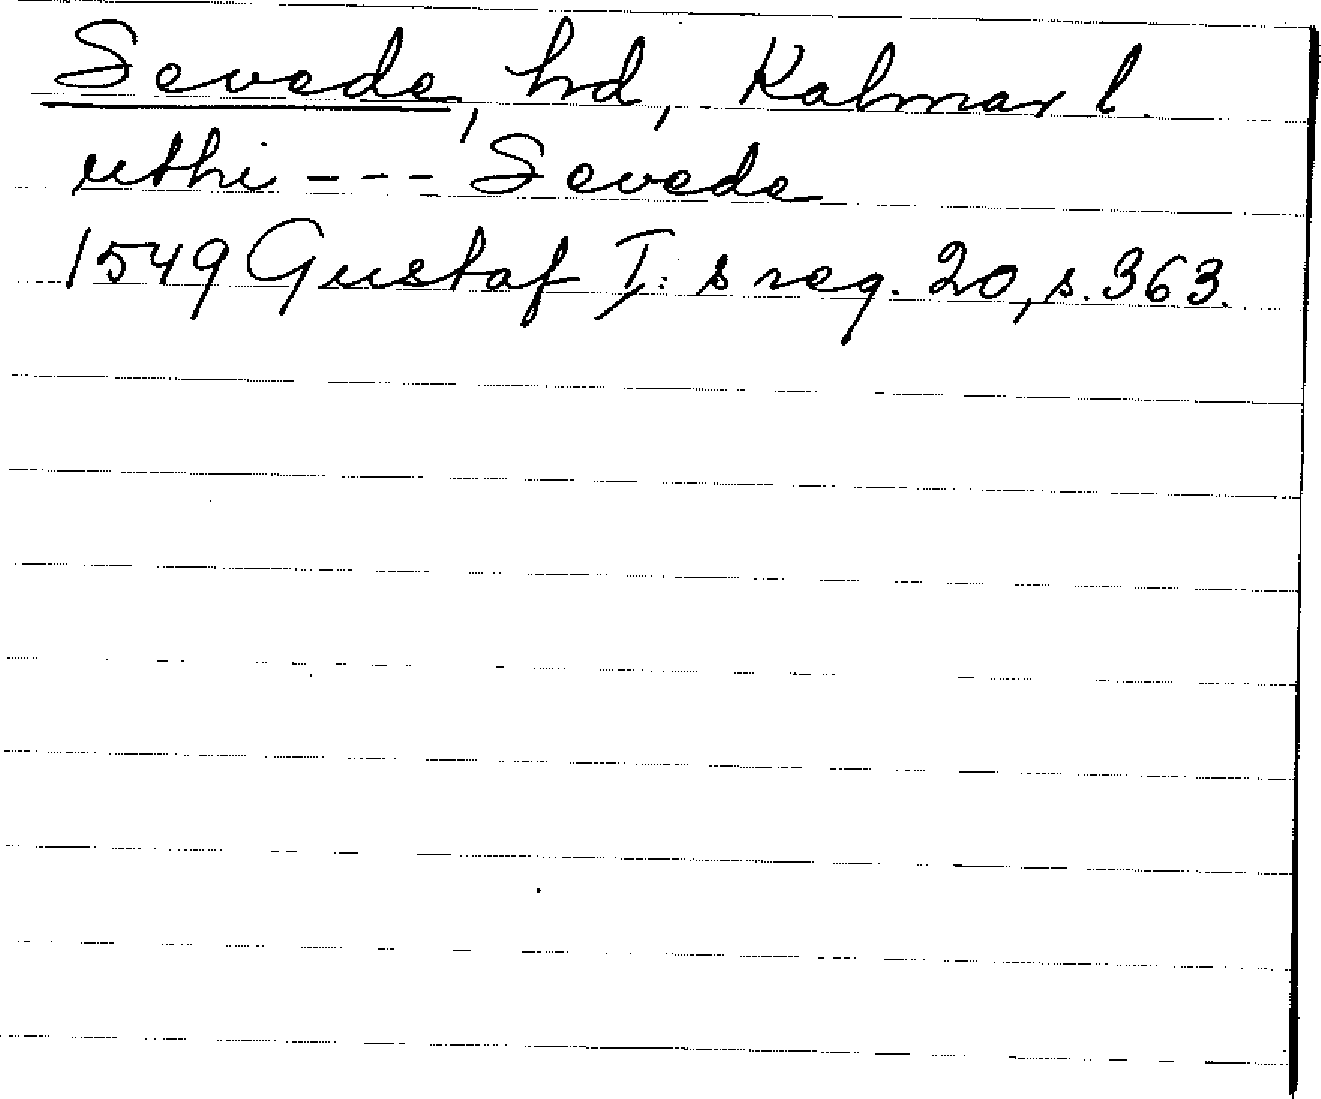 Sevede, hd, Kalmar l.
uthi --- Sevede
1549 Gustaf I:s reg. 20, s. 363.